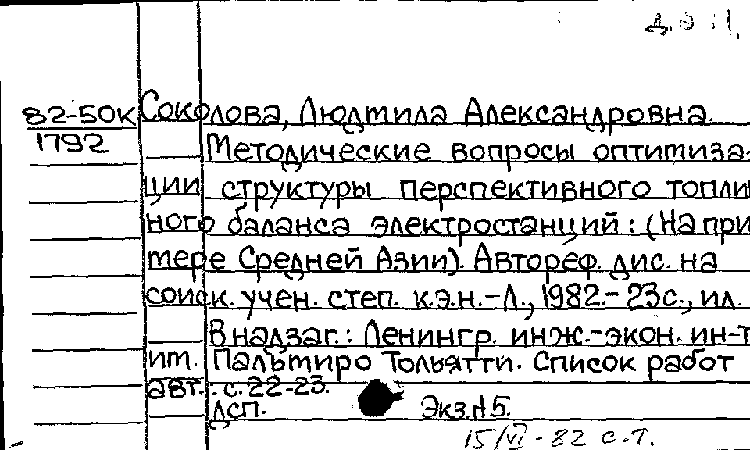 82-50к Соколова, Людмила Александровна.
1792 Методические вопросы оптимиза-
ции структуры перспективного топлив
ного баланса электростанций: (На при
мере Средней Азии). Автореф. дис. на
соиск. учен. степ. к.э.н.-Л., 1982.- 23с., ил.
В надзаг.: Ленингр. инж.-экон. ин-т
им. Пальмиро Тольятти. Список работ
авт.: с. 22-23.
дсп. Экз.№5.
15/VI-82 с.т.